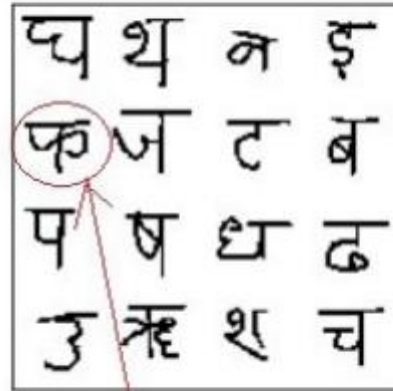 घ थ न इ
फ ज ट ब
प ष ध ढ
उ ऋ श च